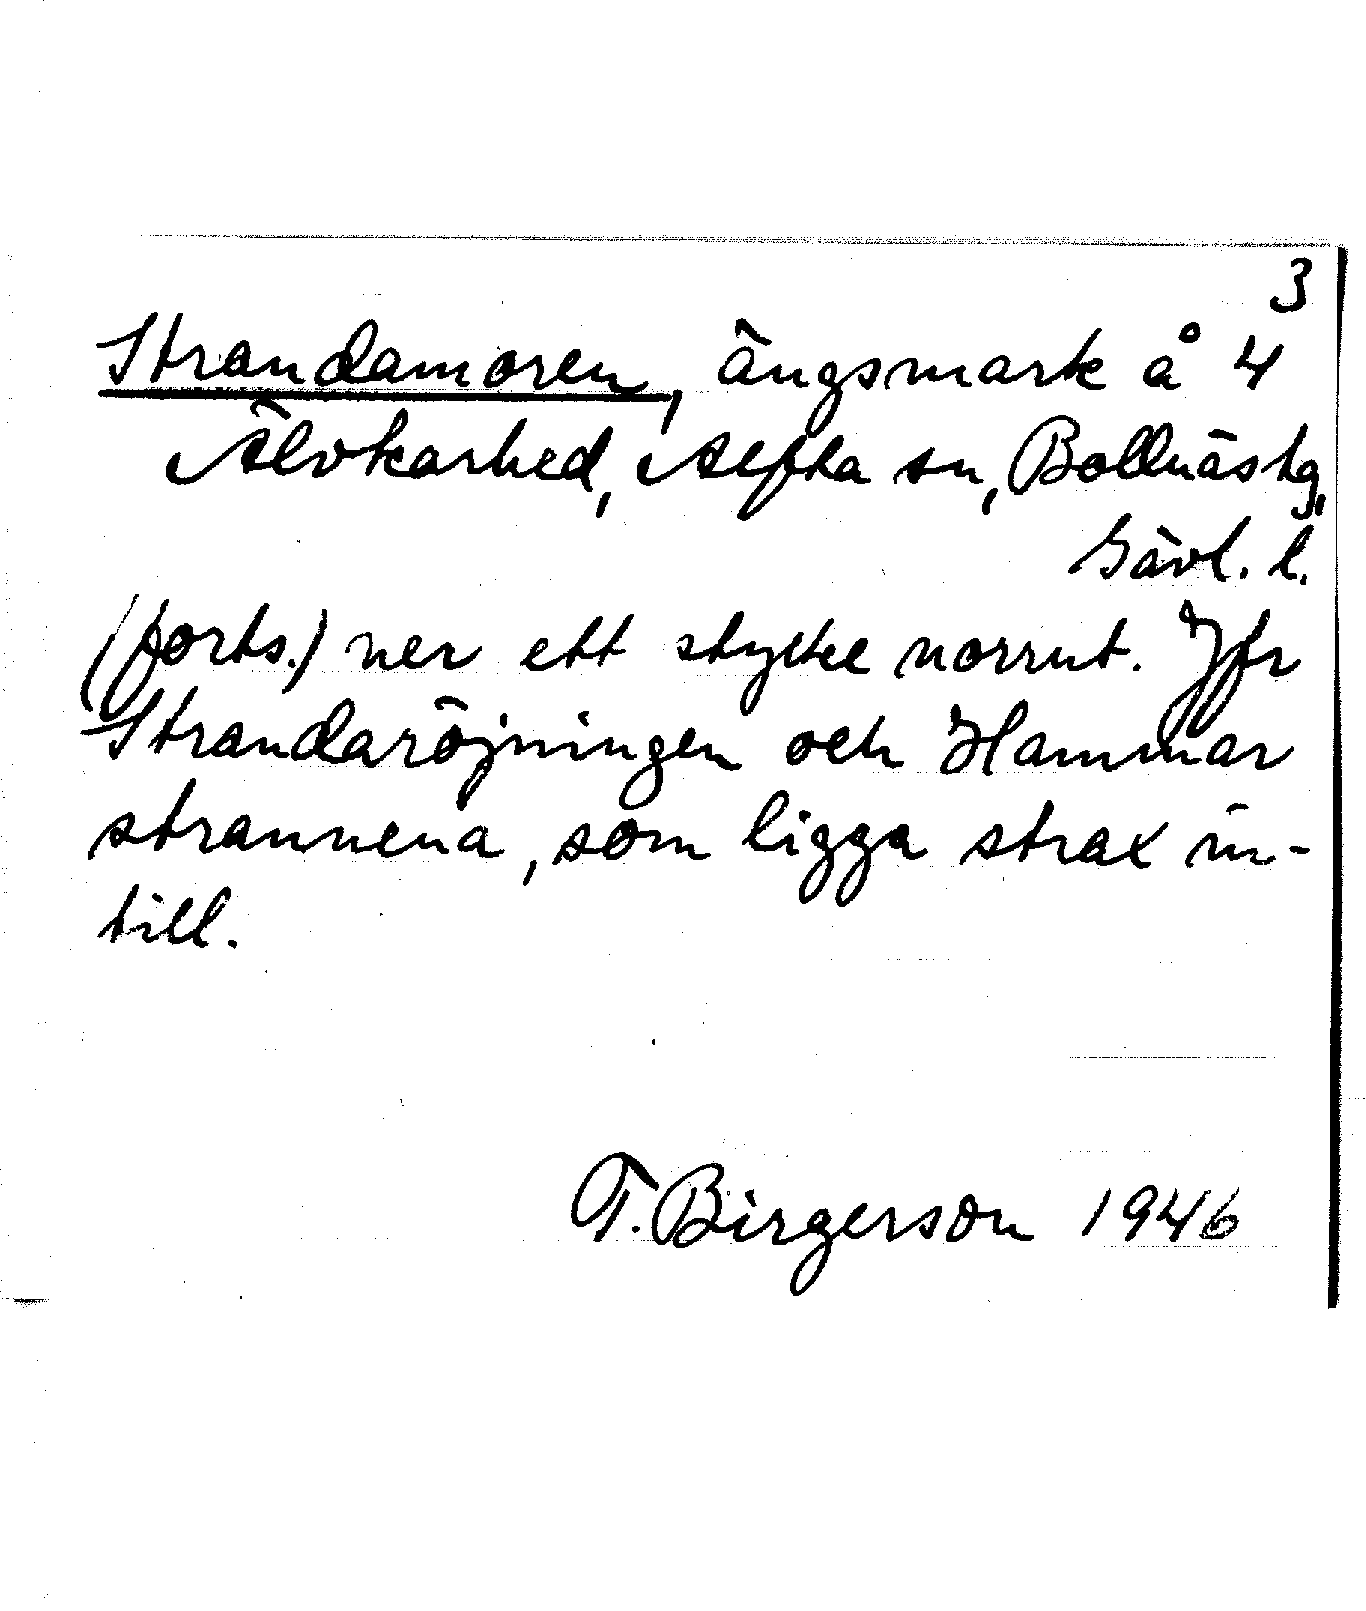 3
Strandamoren, ängsmark å 4
Älvkarhed, Alfta sn, Bollnäs tg,
Gävl. l.
(forts.) ner ett stycke norrut. Jfr
Strandaröjningen och Hammar
strannena, som ligga strax in-
till.
T. Birgerson 1946